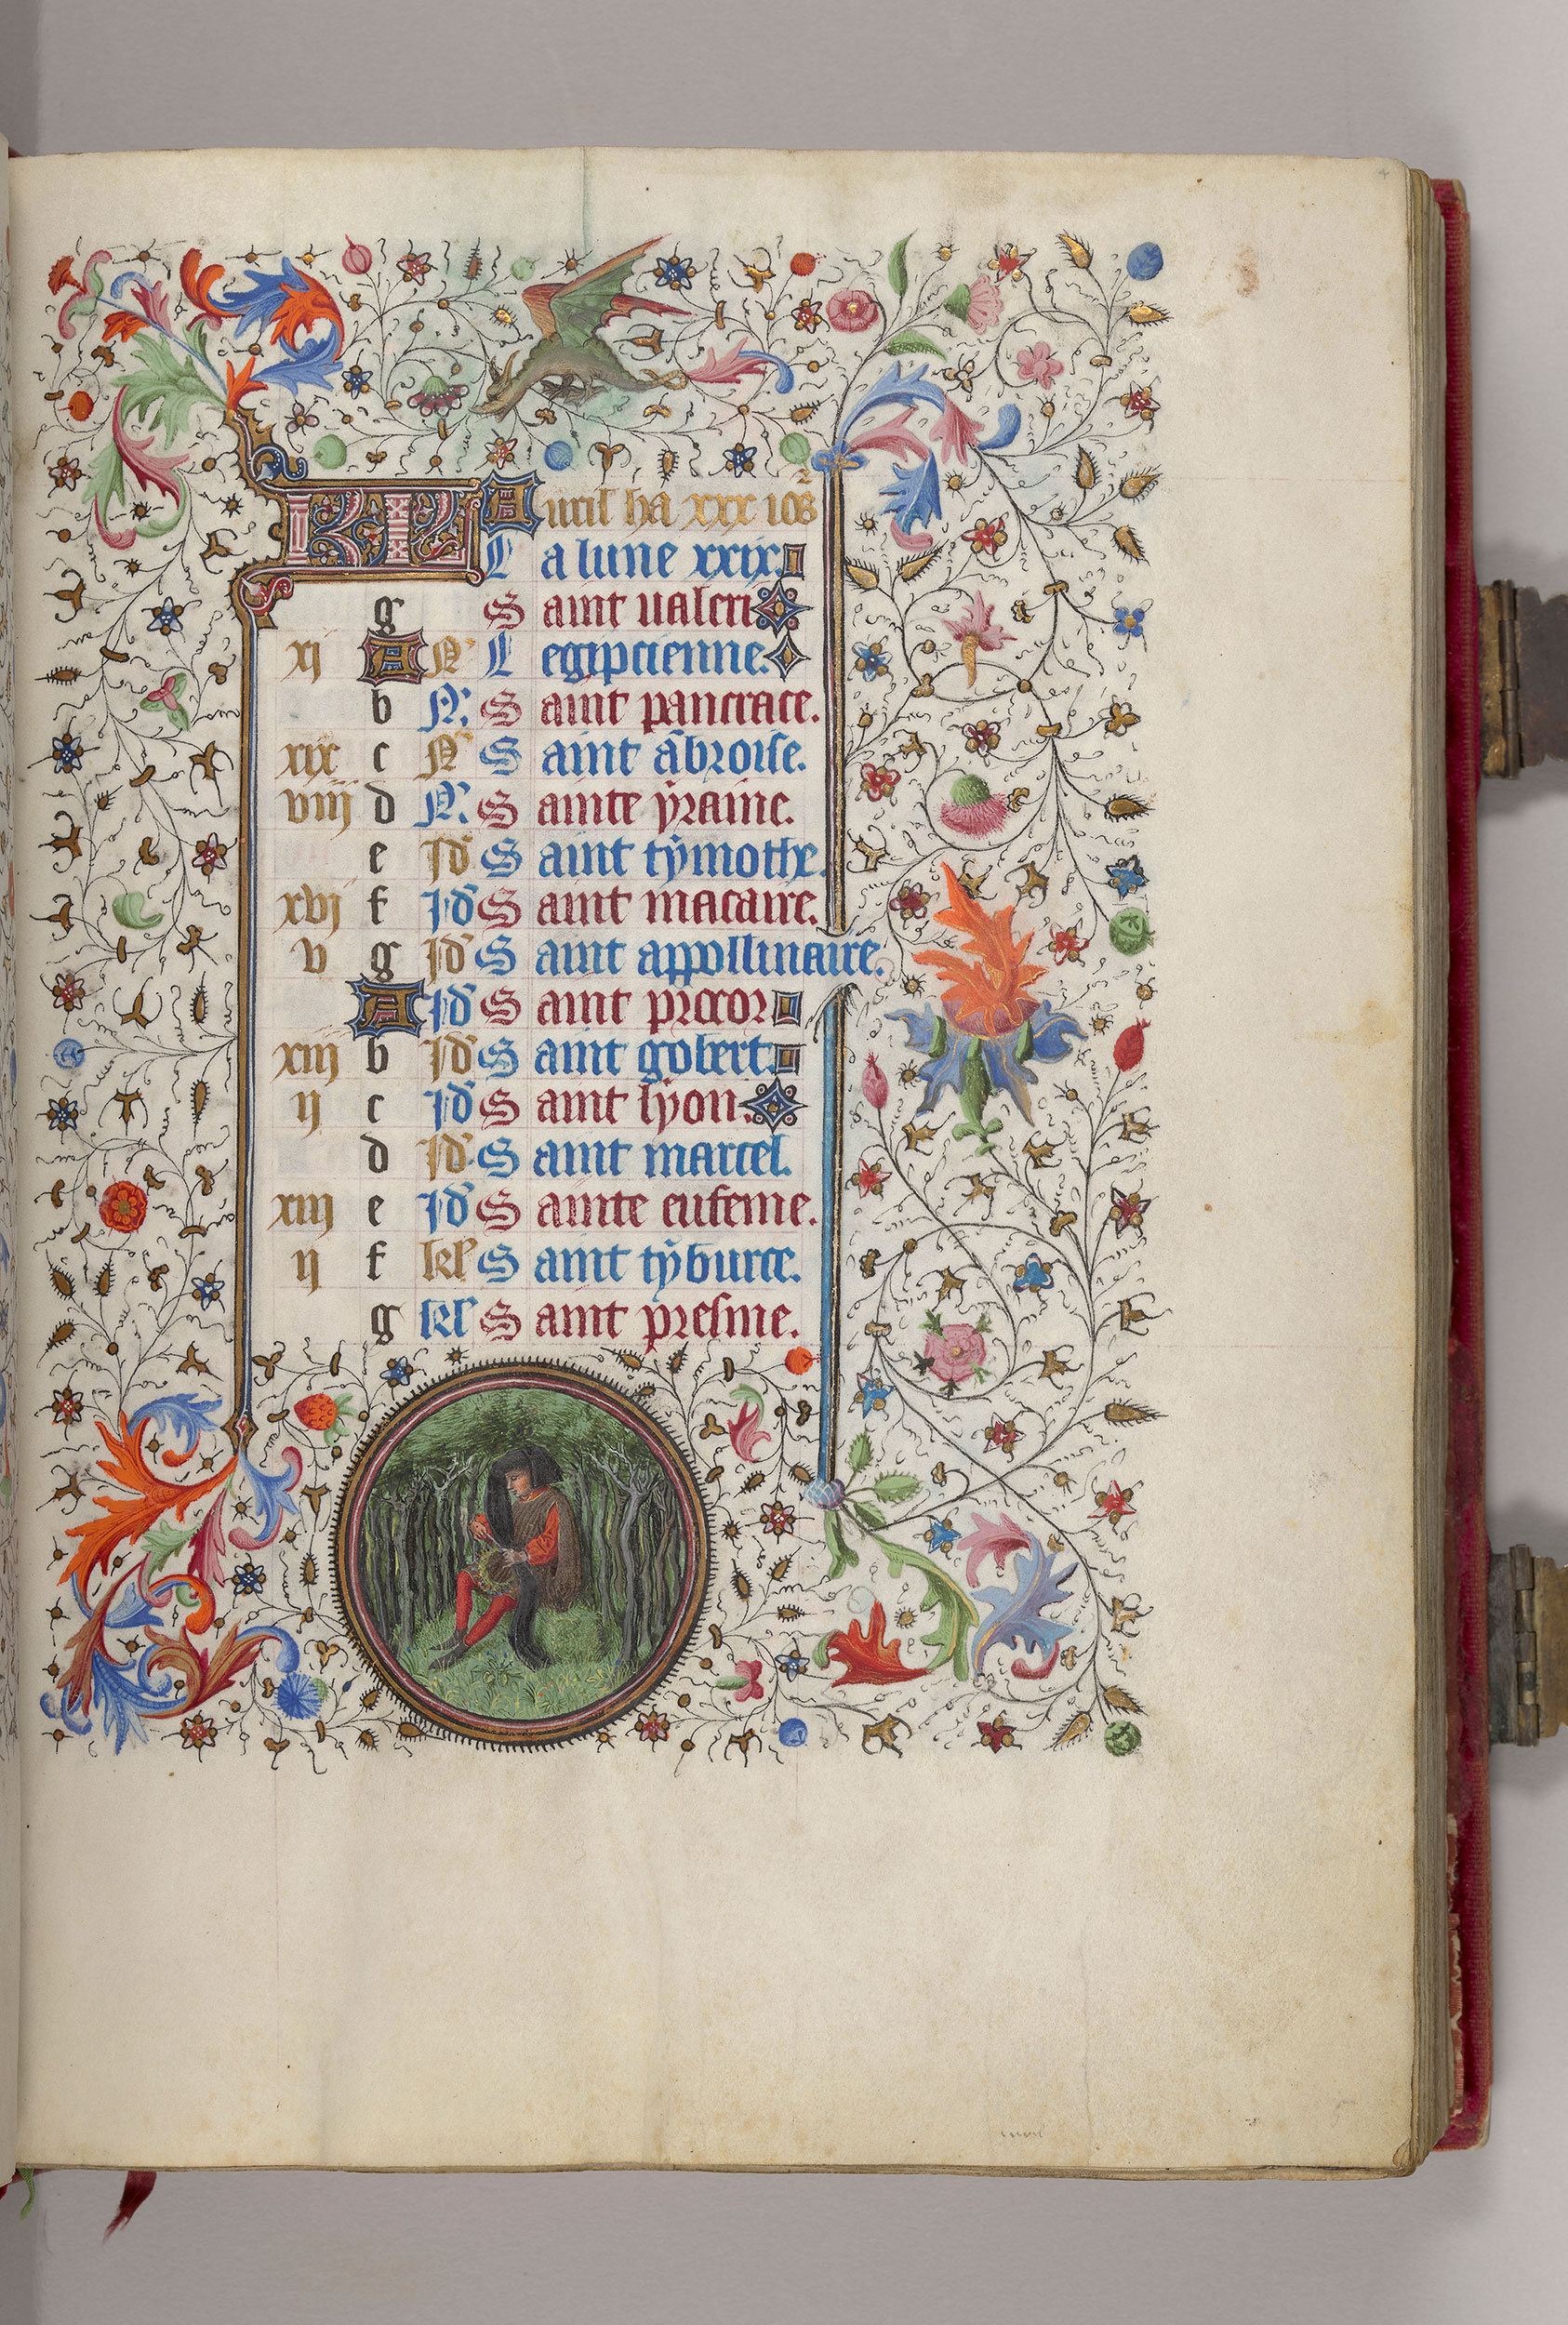 KL Auril ha xxx iors
La lune xxix.
g Saint Ualeri
xj A N L egipcienne.
b N. Saint pancrace.
xix c N Saint ābroise.
viij d N. Sainte ÿraine.
e Id Saint tÿmothe.
xvj f Id Saint macaire.
v g Id Saint appollinaire.
A Id Saint procor
xiij b Id Saint gobert.
ij c Id Saint lÿon.
d Id Saint marcel.
xiij e Id Sainte eufeme.
ij f kl Saint tÿburce.
g kl Saint presme.
4